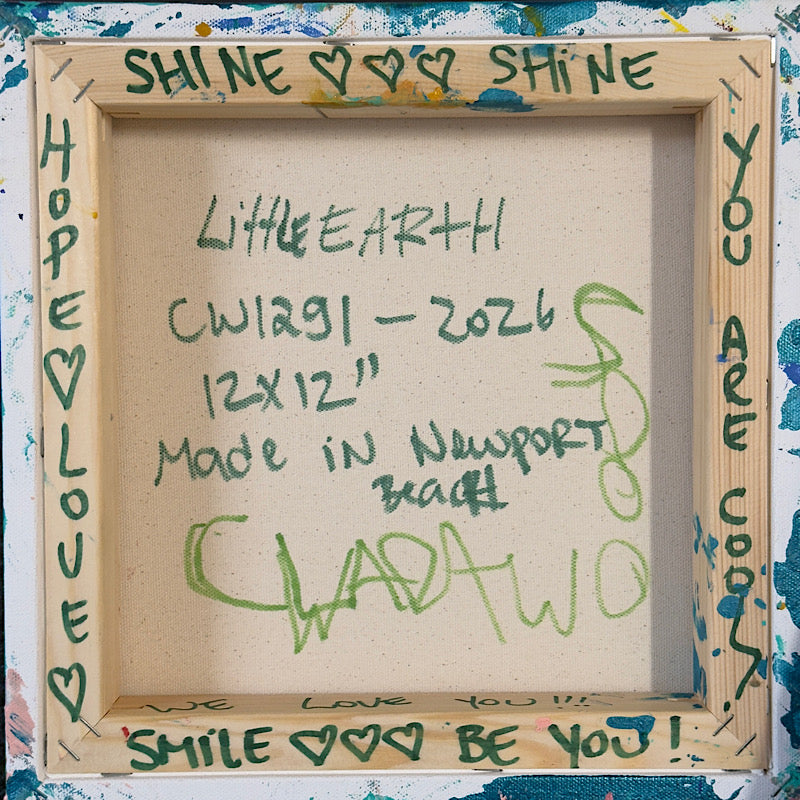 SHINE ♡♡♡ SHINE
HOPE ♡ LOVE ♡
YOU ARE COOL!
Little EARTH
CW1291 - 2026
12X12"
Made in Newport
Beach
WE LOVE YOU!!!
SMILE ♡♡♡ BE YOU!